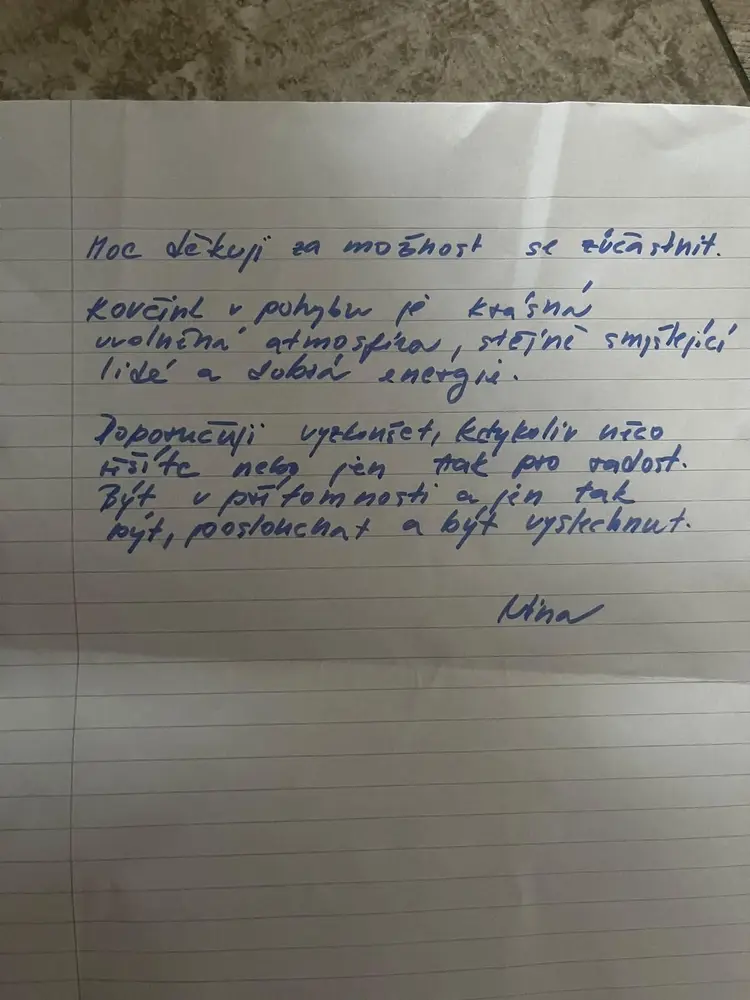 Moc děkuji za možnost se zúčastnit.
Koučink v pohybu je krásná
uvolněná atmosféra, stejně smýšlející
lidé a dobrá energie.
Doporučuji vyzkoušet, kdykoliv něco
řešíte nebo jen tak pro radost.
Být v přítomnosti a jen tak
být, poslouchat a být vyslechnut.
Nina